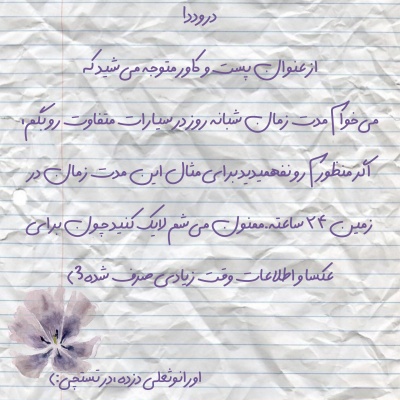 درود⁦دا
از عنوان پست و کاور متوجه می شید که
می خوام مدت زمان شبانه روز در سیارات متفاوت رو بگم،
اگر منظورم رو نفهمیدید برای مثال این مدت زمان در
زمین ۲۴ ساعته.ممنون می شم لایک کنید چون برای
عکسا و اطلاعات وقت زیادی صرف شده3>
دزده،در نسنچی:)